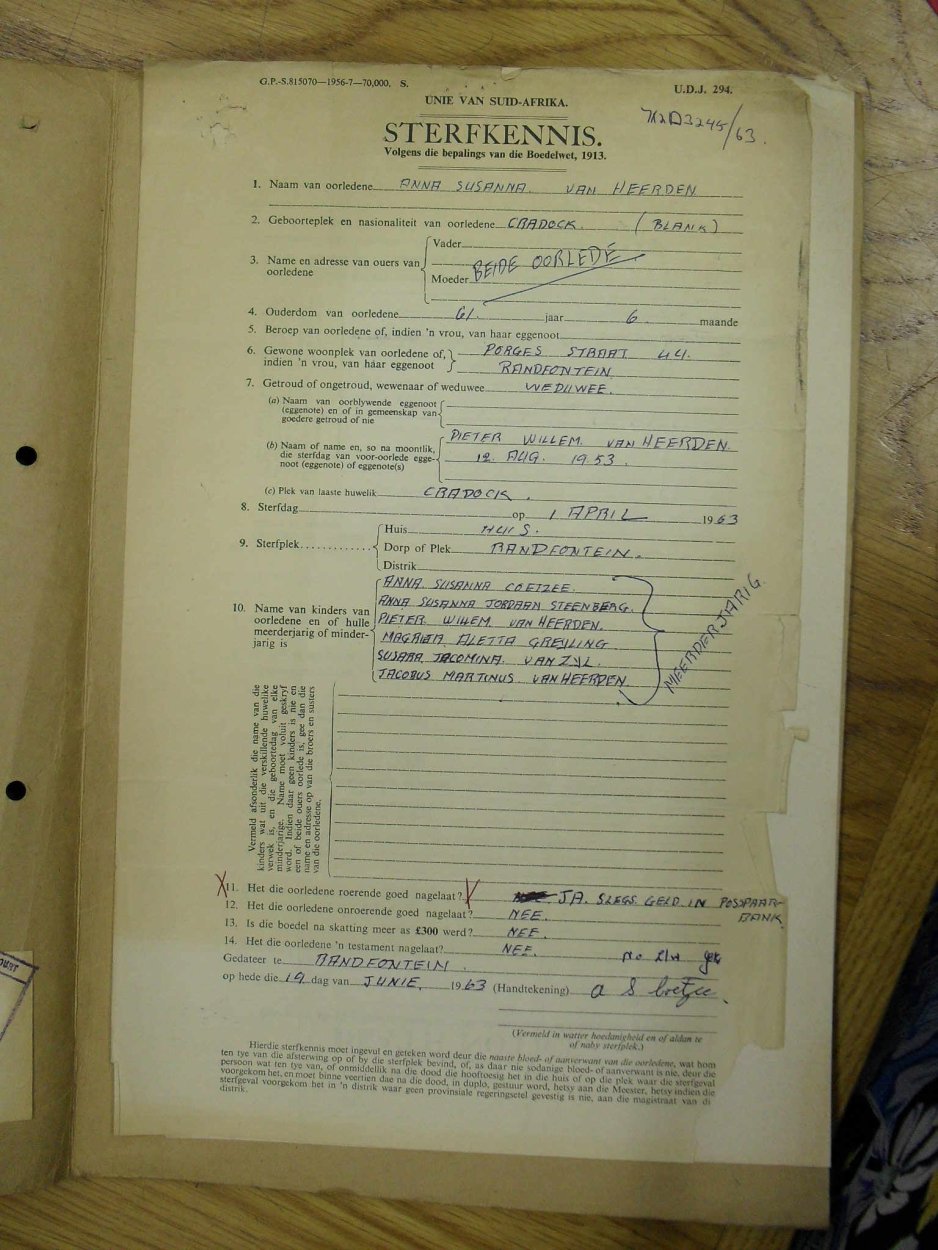 G.P.-S.815070—1956-7—70,000. S.
U.D.J. 294.
UNIE VAN SUID-AFRIKA.
3245/63.
STERFKENNIS.
Volgens die bepalings van die Boedelwet, 1913.
1. Naam van oorledene ANNA SUSANNA VAN HEERDEN
2. Geboorteplek en nasionaliteit van oorledene CRADOCK. (BLANK)
3. Name en adresse van ouers van oorledene
Vader
Moeder
BEIDE OORLEDE
4. Ouderdom van oorledene 61. jaar 6 maande
5. Beroep van oorledene of, indien 'n vrou, van haar eggenoot
6. Gewone woonplek van oorledene of, indien 'n vrou, van haar eggenoot
PORGES STRAAT 44.
RANDFONTEIN
7. Getroud of ongetroud, wewenaar of weduwee WEDUWEE.
(a) Naam van oorblywende eggenoot
(eggenote) en of in gemeenskap van
goedere getroud of nie
(b) Naam of name en, so na moontlik,
die sterfdag van voor-oorlede egge-
noot (eggenote) of eggenote(s)
PIETER WILLEM VAN HEERDEN.
12. AUG. 1953.
(c) Plek van laaste huwelik CRADOCK.
8. Sterfdag op 1 APRIL 1963
9. Sterfplek
Huis HUIS.
Dorp of Plek RANDFONTEIN.
Distrik
10. Name van kinders van
oorledene en of hulle
meerderjarig of minder-
jarig is
ANNA SUSANNA COETZEE.
ANNA SUSANNA JORDAAN STEENBERG.
PIETER WILLEM VAN HEERDEN.
MAGRIETA ALETTA GREYLING
SUSARA JACOMINA VAN ZYL.
JACOBUS MARTINUS VAN HEERDEN.
MEERDERJARIG
Vermeld afsonderlik die name van die
kinders wat uit die verskillende huwelike
verwek is, en die geboortedag van elke
minderjarige. Name moet voluit geskryf
word. Indien daar geen kinders is nie en
een of beide ouers oorlede is, gee dan die
name en adresse op van die broers en susters
van die oorledene.
X11. Het die oorledene roerende goed nagelaat? JA. SLEGS GELD IN POSSPAAR-
BANK
12. Het die oorledene onroerende goed nagelaat? NEE.
13. Is die boedel na skatting meer as £300 werd? NEE.
14. Het die oorledene 'n testament nagelaat? NEE.
Gedateer te RANDFONTEIN.
op hede die 19 dag van JUNIE 1963 (Handtekening) A S Coetzee.
(Vermeld in watter hoedanigheid en of aldan te
of naby sterfplek.)
Hierdie sterfkennis moet ingevul en geteken word deur die naaste bloed- of aanverwant van die oorledene, wat hom
ten tye van die afsterwing op of by die sterfplek bevind, of, as daar nie sodanige bloed- of aanverwant is nie, deur die
persoon wat ten tye van, of onmiddellik na die dood die hooftoesig het in die huis of op die plek waar die sterfgeval
voorgekom het, en moet binne veertien dae na die dood, in duplo, gestuur word, hetsy aan die Meester, hetsy indien die
sterfgeval voorgekom het in 'n distrik waar geen provinsiale regeringsetel gevestig is nie, aan die magistraat van di
distrik.